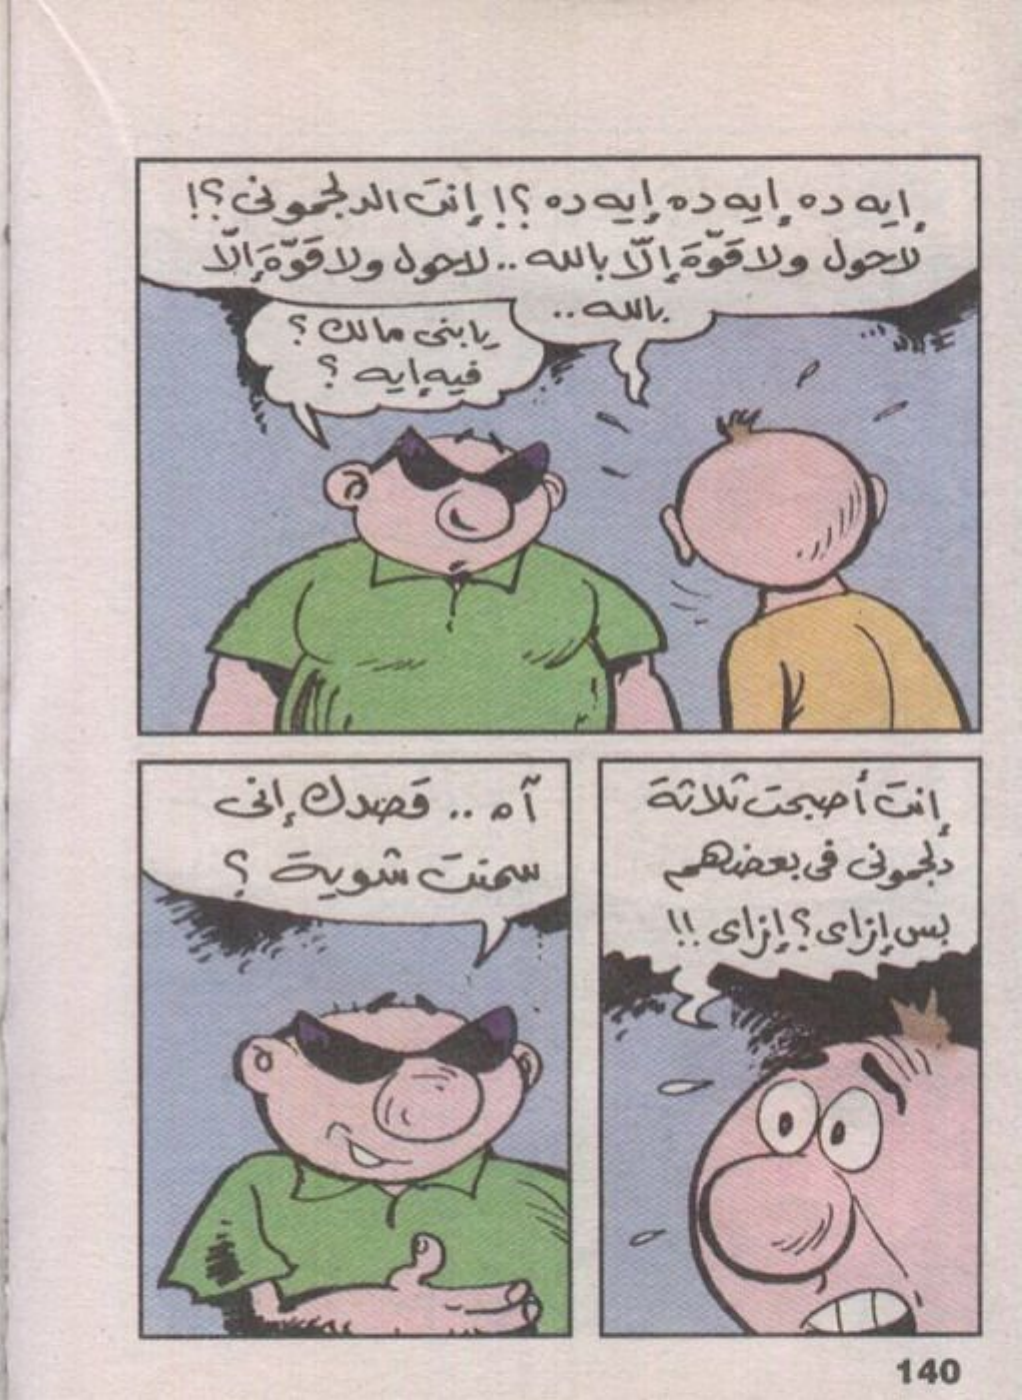 إيه ده إيه ده إيه ده ؟! إنت الدلجمونى ؟!
لاحول ولا قوّة إلّا بالله .. لاحول ولا قوّة إلّا
بالله ..
يابنى مالك ؟
فيه إيه ؟
إنتَ أصبحت ثلاثة
دلجمونى فى بعضهم
بس إزاى ؟ إزاى !!
آه .. قصدك إنى
سمنت شوية ؟
140